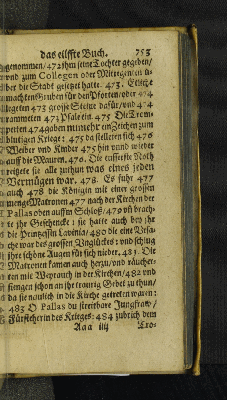 das eilffte Buch. 753
genommen/472 ihm seine Tochter gegeben/
und zum Collegen oder Mitregenten ü-
ber die Stadt gesetzt hatte. 473. Etliche
machten Gruben für den Pforten/oder 474
legeten 473 grosse Steine dafür/und 474
rammeten 473 Pfäle ein. 475 Die Trom-
peten 474 gaben nunmehr ein Zeichen zum
blutigen Kriege: 475 da stelleten sich 476
Weiber und Kinder 475 hin unnd wieder
auff die Mauren. 476. Die eusserste Noth
reitzete sie alle zuthun was eines jeden
Vermügen war. 478. Es fuhr 477
auch 478 die Königin mit einer grossen
menge Matronen 477 nach der Kirchen der
Pallas oben auff im Schloß/479 uñ brach-
te ihr Geschencke: sie hatte auch bey ihr
die Prinzessin Lavinia/480 die eine Ursa-
che war des grossen Unglückes: und schlug
ihre schöne Augen für sich nieder. 481. Die
Matronen kamen auch herzu/und räucher-
ten mit Weyrauch in der Kirchen/482 und
fiengen schon an ihr traurig Gebet zu thun/
da sie nämlich in die Kirche getreten waren:
483 O Pallas du streitbare Jungfraw/
Fürsteherin des Krieges: 484 zubrich dem
Aaa iiij Tro-